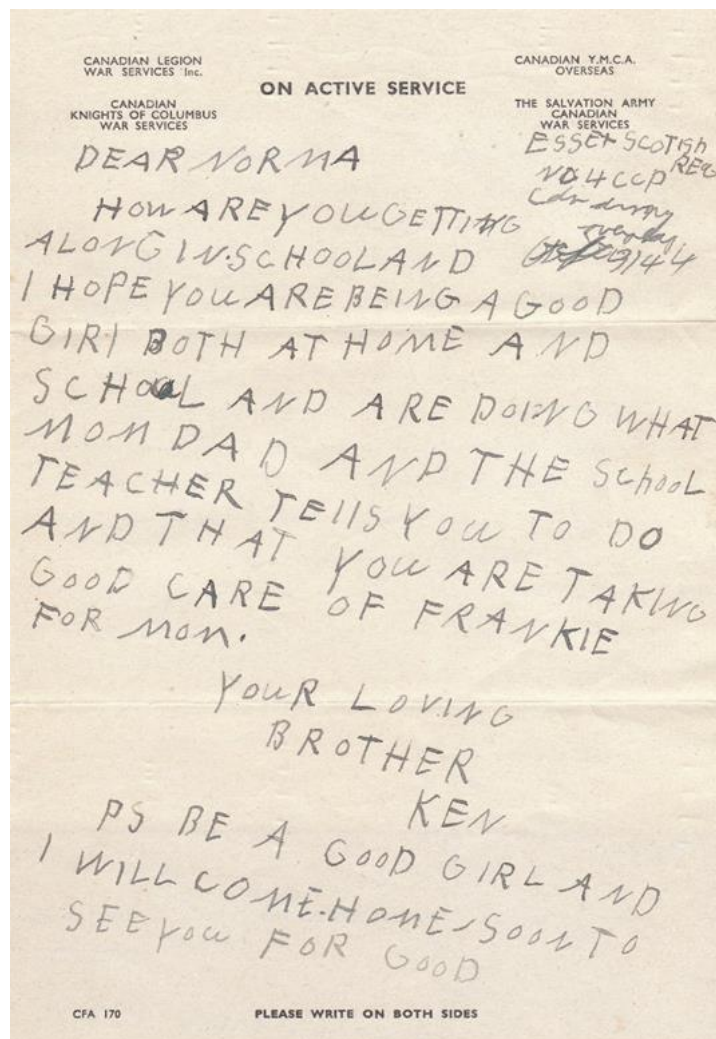 CANADIAN LEGION
WAR SERVICES Inc.
CANADIAN
KNIGHTS OF COLUMBUS
WAR SERVICES
ON ACTIVE SERVICE
CANADIAN Y.M.C.A.
OVERSEAS
THE SALVATION ARMY
CANADIAN
WAR SERVICES
ESSEX SCOTISH
REG
NO 4 CCP
Cdn army
overseas
44
DEAR NORMA
HOW ARE YOU GETTING
ALONG IN SCHOOL AND
I HOPE YOU ARE BEING A GOOD
GIRl BOTH AT HOME AND
SCHOOL AND ARE DOING WHAT
MOM DAD AND THE SchooL
TEACHER TEllS YOU TO DO
AND THAT YOU ARE TAKING
GOOD CARE OF FRANKIE
FOR MOM.
YOUR LOVING
BROTHER
KEN
PS BE A GOOD GIRL AND
I WILL COME HOME SOON TO
SEE YOU FOR GOOD
CFA 170
PLEASE WRITE ON BOTH SIDES